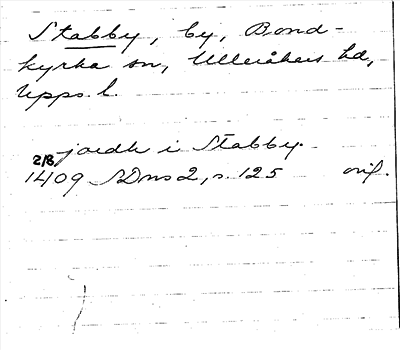 Stabby, by, Bond-
kyrka sn, Ulleråkers hd,
Upps. l.
jordh i Stabby.
2/8
1409 SDns 2, s. 125 orig.